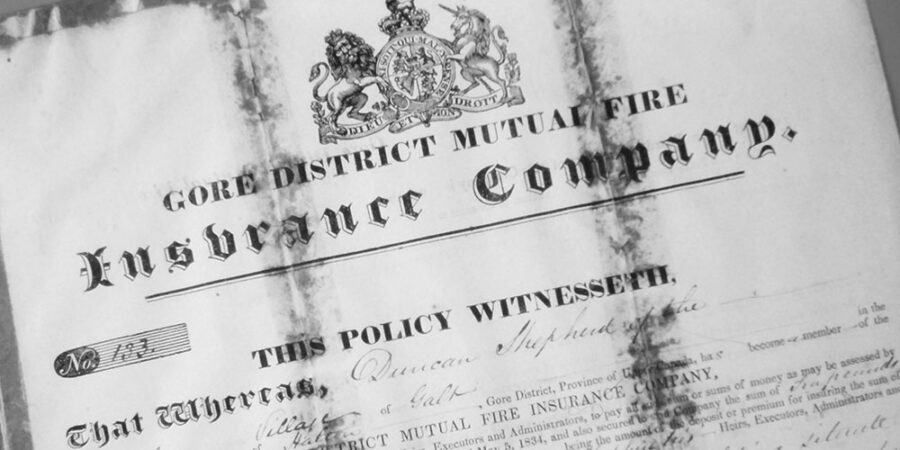 DIEU ET MON DROIT
GORE DISTRICT MUTUAL FIRE
Insurance Company.
THIS POLICY WITNESSETH,
No. 133.
That Whereas, Duncan Shepherd of the
Village of Galt, Gore District, Province of Upper Canada, has become a member of the in the
DISTRICT MUTUAL FIRE INSURANCE COMPANY,
Executors and Administrators, to pay all sum or sums of money as may be assessed by
May 5, 1834, and also secured to said Company the sum of
being the amount of the deposit or premium for insuring the sum of
Heirs, Executors, Administrators and